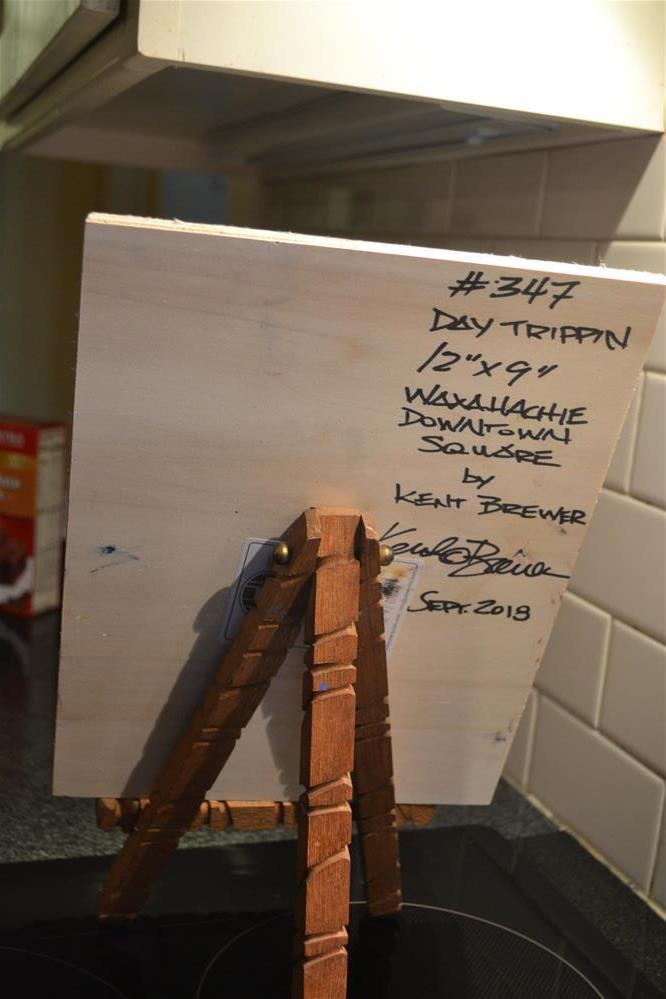 #347
DAY TRIPPIN
12"x9"
WAXAHACHIE
DOWNTOWN
SQUARE
by
KENT BREWER
Kent Brewer
SEPT. 2019